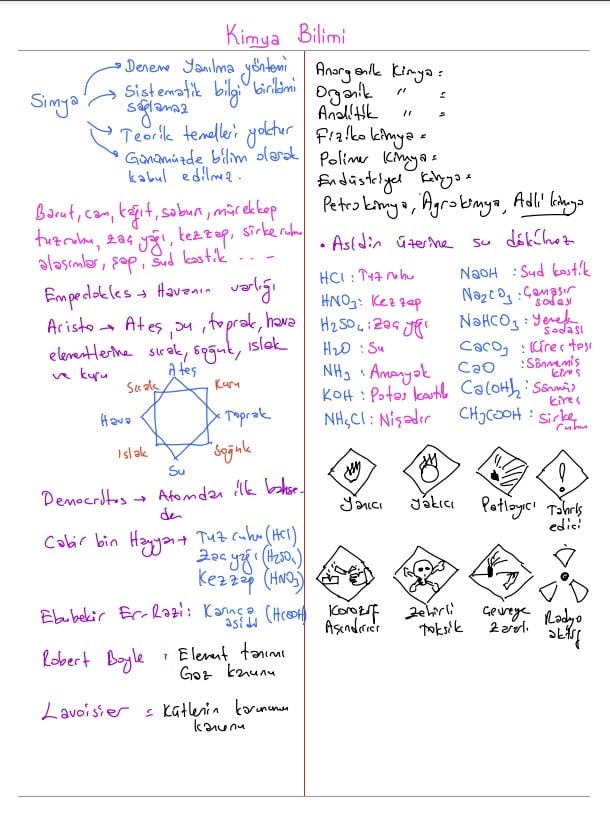 Kimya Bilimi
Simya
Deneme Yanılma yöntemi
Sistematik bilgi birikimi
sağlamaz
Teorik temelleri yoktur
Günümüzde bilim olarak
kabul edilmez.
Barut, cam, kağıt, sabun, mürekkep
tuzruhu, zaç yağı, kezzap, sirke ruhu
alaşımlar, şap, sud kostik ...
Empedokles → Havanın varlığı
Aristo → Ateş, su, toprak, hava
elementlerine sıcak, soğuk, ıslak
ve kuru
Ateş
Sıcak
Kuru
Hava
Toprak
Islak
Soğuk
Su
Democritos → Atomdan ilk bahse-
den
Cabir bin Hayyan → Tuz ruhu (HCl)
Zaç yağı (H2SO4)
Kezzap (HNO3)
Ebubekir Er-Razi: Karınca (HCOOH)
asidi
Robert Boyle : Element tanımı
Gaz kanunu
Lavoisier = Kütlenin korunumu
kanunu
Anorganik Kimya =
Organik " =
Analitik " =
Fizikokimya =
Polimer Kimya =
Endüstriyel Kimya =
Petrokimya, Agrokimya, Adli kimya
• Asidin üzerine su dökülmez
HCl : Tuz ruhu
HNO3 : Kezzap
H2SO4 : Zaç yağı
H2O : Su
NH3 : Amonyak
KOH : Potas kostik
NH4Cl : Nişadır
NaOH : Sud kostik
Na2CO3 : Çamaşır
sodası
NaHCO3 : Yemek
sodası
CaCO3 : Kireç taşı
CaO : Sönmemiş
kireç
Ca(OH)2 : Sönmüş
kireç
CH3COOH : Sirke
ruhu
Yanıcı
Yakıcı
Patlayıcı
Tahriş
edici
Korozif
Aşındırıcı
Zehirli
Toksik
Çevreye
Zararlı
Radyo
aktif